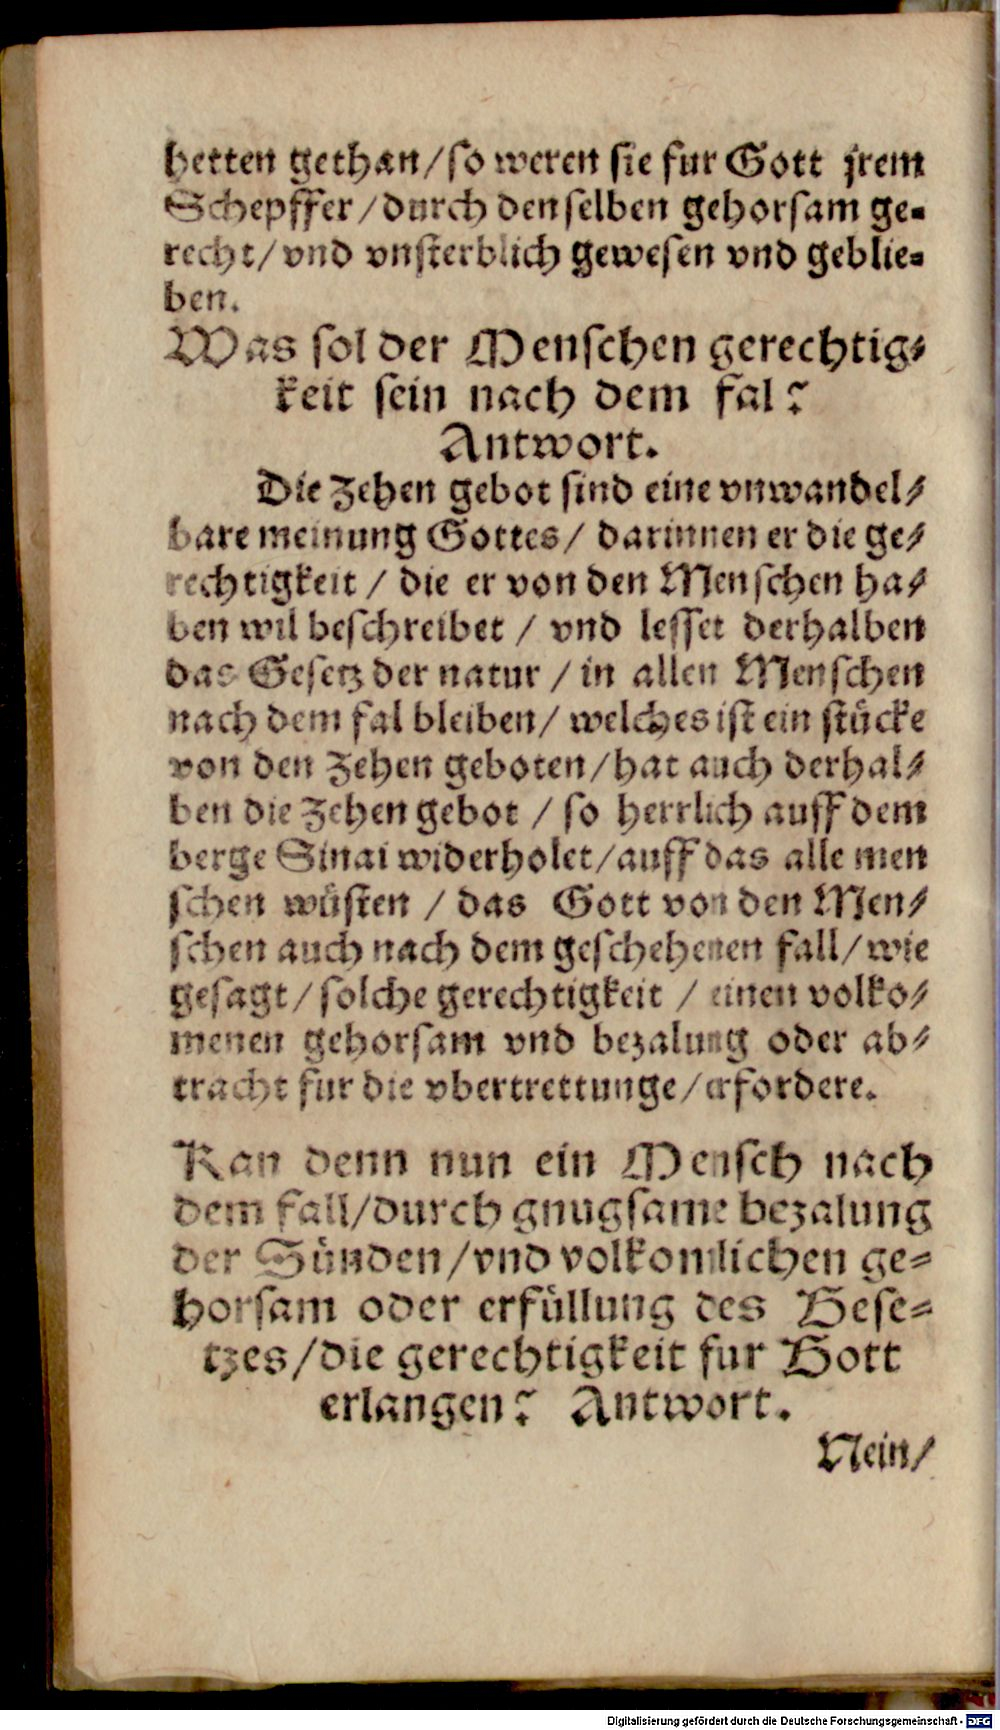 hetten gethan/so weren sie fur Gott jrem
Schepffer/durch denselben gehorsam ge-
recht/vnd vnsterblich gewesen vnd geblie-
ben.
Was sol der Menschen gerechtig-
keit sein nach dem fal?
Antwort.
Die Zehen gebot sind eine vnwandel-
bare meinung Gottes/ darinnen er die ge-
rechtigkeit / die er von den Menschen ha-
ben wil beschreibet / vnd lesset derhalben
das Gesetz der natur / in allen Menschen
nach dem fal bleiben/ welches ist ein stücke
von den Zehen geboten/hat auch derhal-
ben die Zehen gebot / so herrlich auff dem
berge Sinai widerholet/auff das alle men
schen wüsten / das Gott von den Men-
schen auch nach dem geschehenen fall/wie
gesagt/solche gerechtigkeit / einen volko-
menen gehorsam vnd bezalung oder ab-
tracht fur die vbertrettunge/erfordere.
Kan denn nun ein Mensch nach
dem fall/durch gnugsame bezalung
der Sünden/vnd volkomlichen ge-
horsam oder erfüllung des Gese-
tzes/die gerechtigkeit fur Gott
erlangen? Antwort.
Nein/
Digitalisierung gefördert durch die Deutsche Forschungsgemeinschaft - DFG